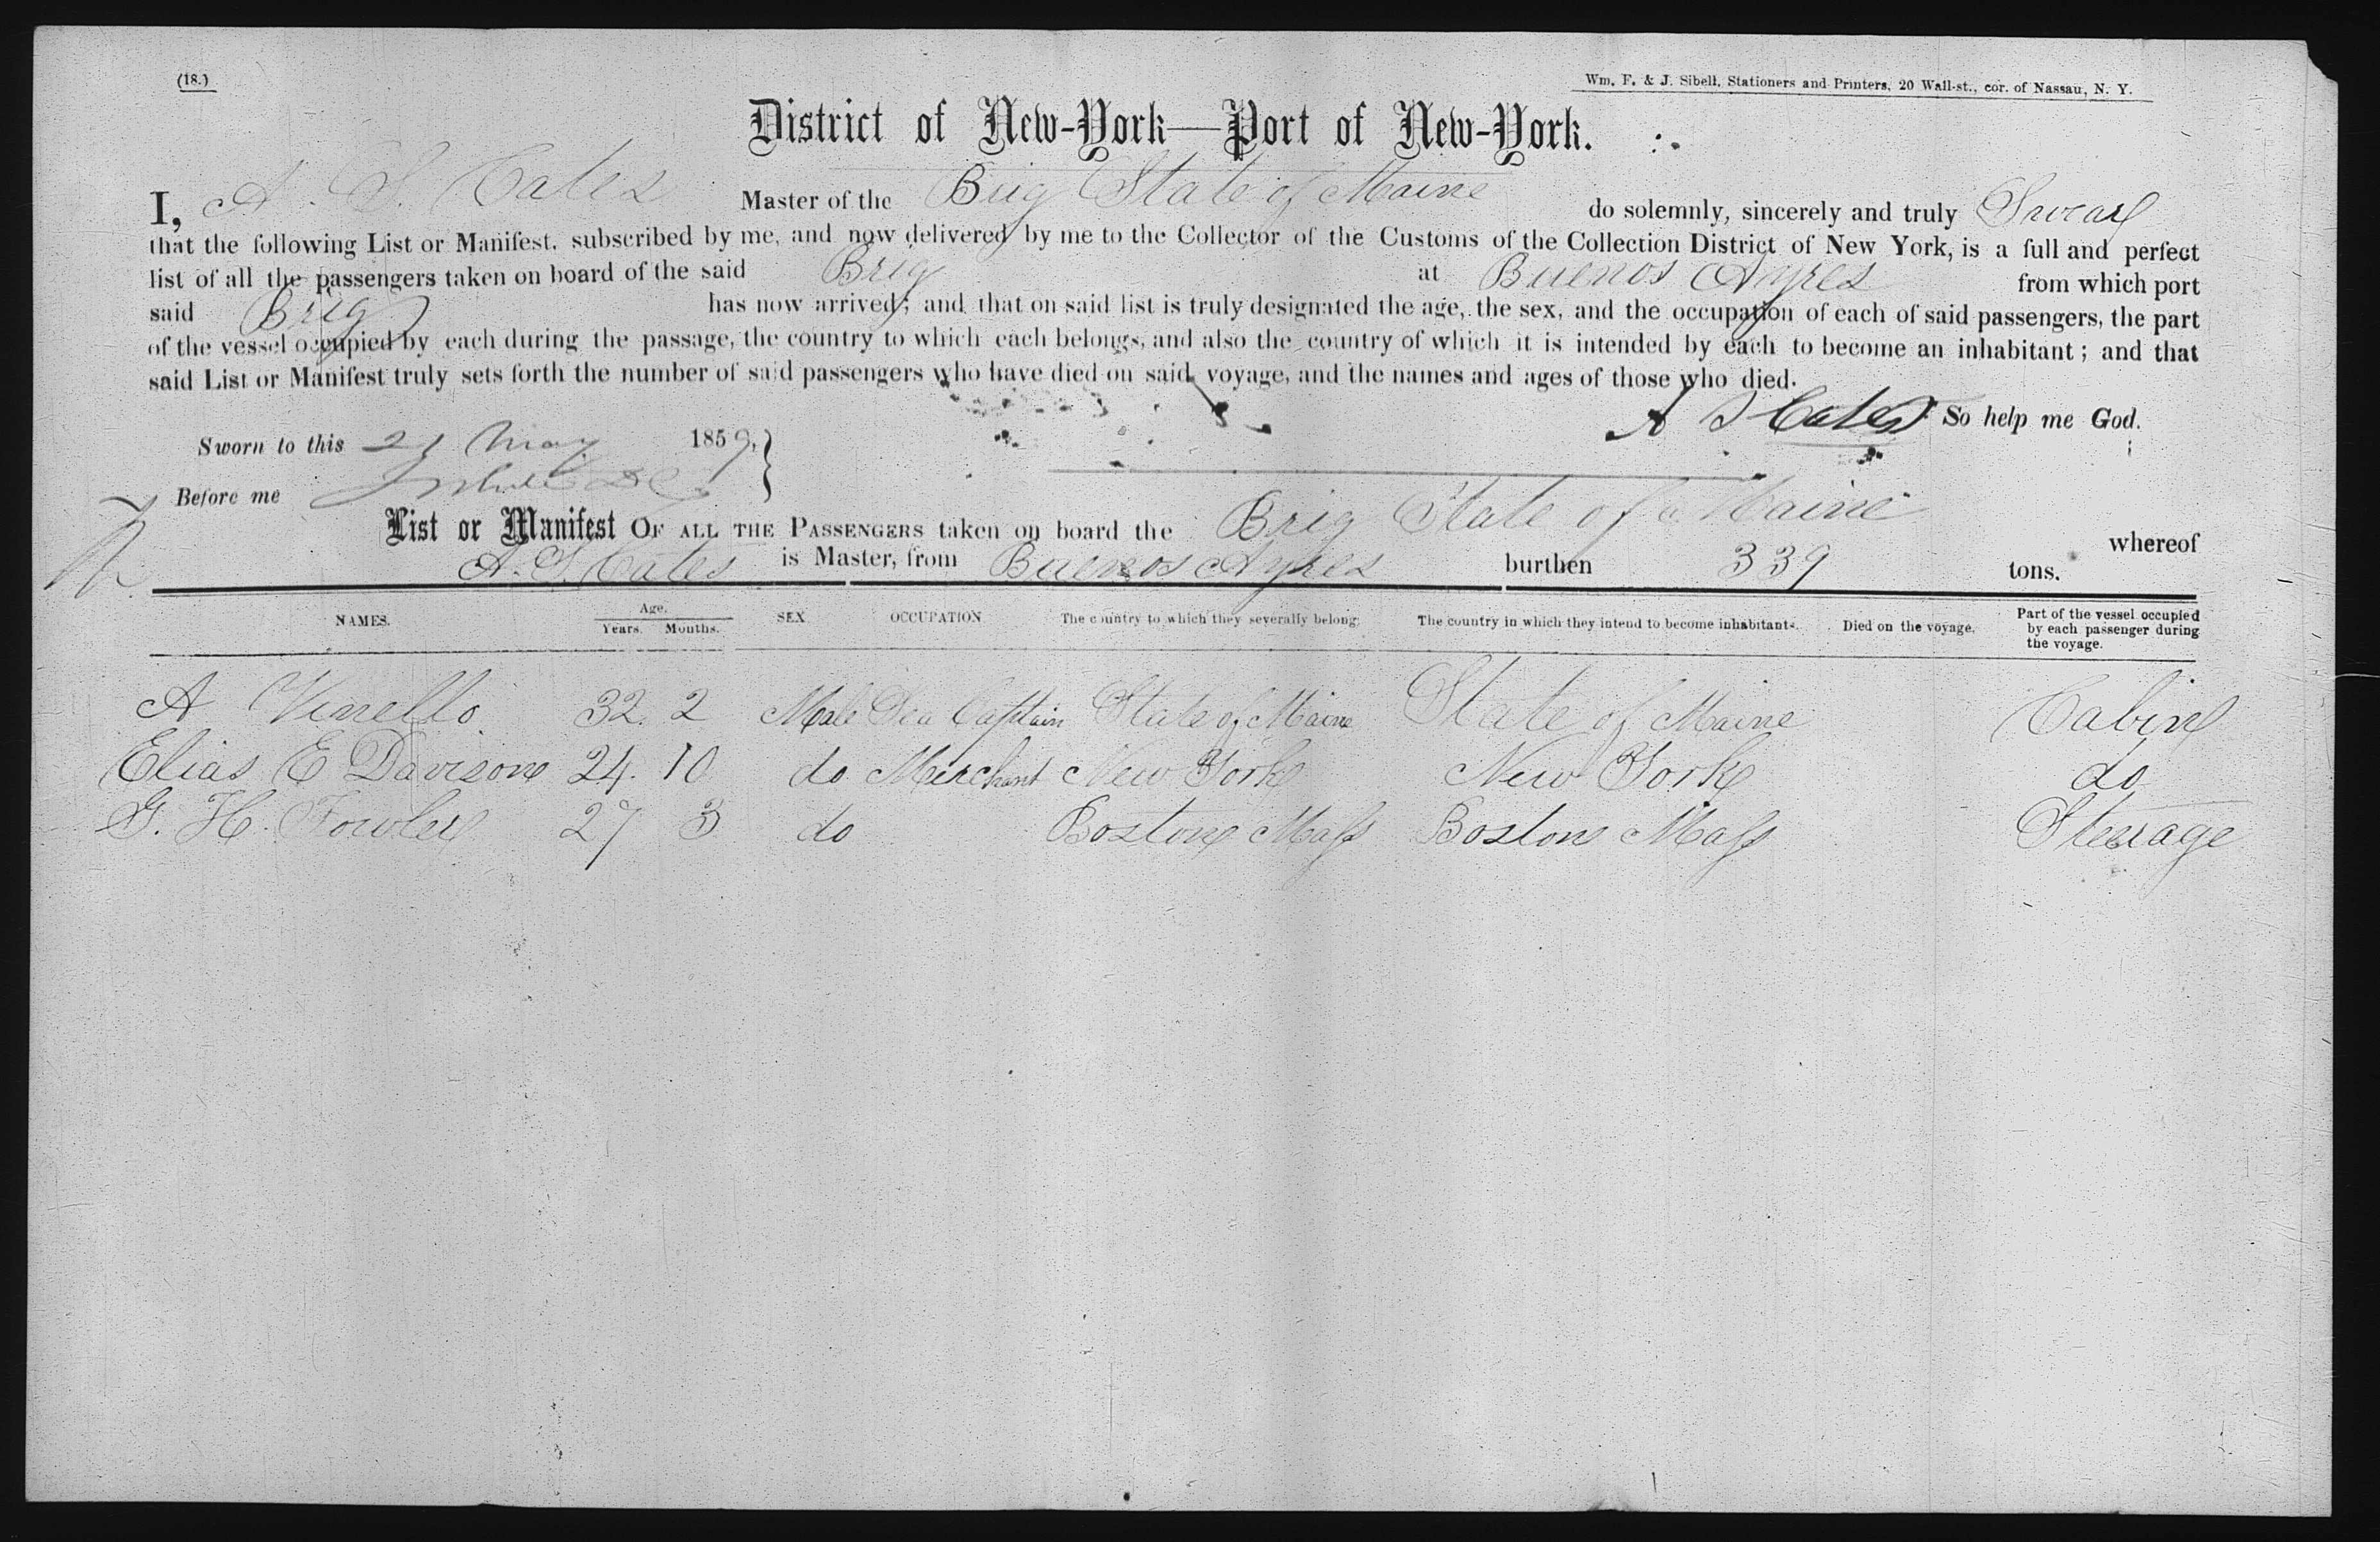 (18.)
Wm. F. & J. Sibell, Stationers and Printers, 20 Wall-st., cor. of Nassau, N. Y.
District of New-York—Port of New-York.
I, A. S. Cates Master of the Brig State of Maine do solemnly, sincerely and truly Swear
that the following List or Manifest, subscribed by me, and now delivered by me to the Collector of the Customs of the Collection District of New York, is a full and perfect
list of all the passengers taken on board of the said Brig at Buenos Ayres from which port
said Brig has now arrived; and that on said list is truly designated the age, the sex, and the occupation of each of said passengers, the part
of the vessel occupied by each during the passage, the country to which each belongs, and also the country of which it is intended by each to become an inhabitant; and that
said List or Manifest truly sets forth the number of said passengers who have died on said voyage, and the names and ages of those who died.
A S Cates So help me God.
Sworn to this 21 May 1859.
Before me
List or Manifest OF ALL THE PASSENGERS taken on board the Brig State of Maine whereof
A. S. Cates is Master, from Buenos Ayres burthen 339 tons.
NAMES. Age. Years. Months. SEX OCCUPATION The country to which they severally belong. The country in which they intend to become inhabitants. Died on the voyage. Part of the vessel occupied by each passenger during the voyage.
A 32. 2 Male Sea Captain State of Maine State of Maine Cabin
Elias E Davison 24. 10 do Merchant New York New York do
G. H. Fowler 27 3 do Boston Mass Boston Mass Steerage